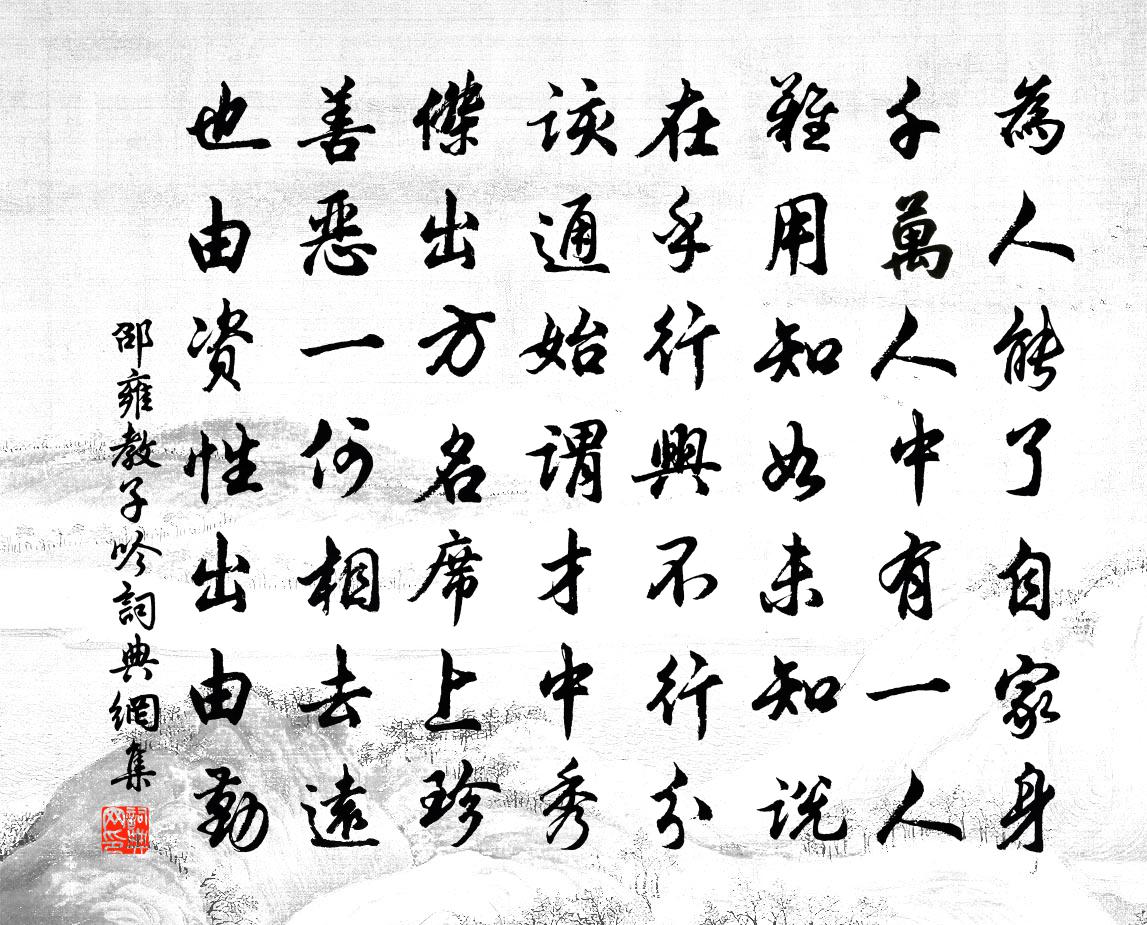 為人能了自家身
千萬人中有一人
難用知如未知說
在乎行與不行分
該通始謂才中秀
傑出方名席上珍
善惡一何相去遠
也由資性出由勤
邵雍教子吟詞典網集